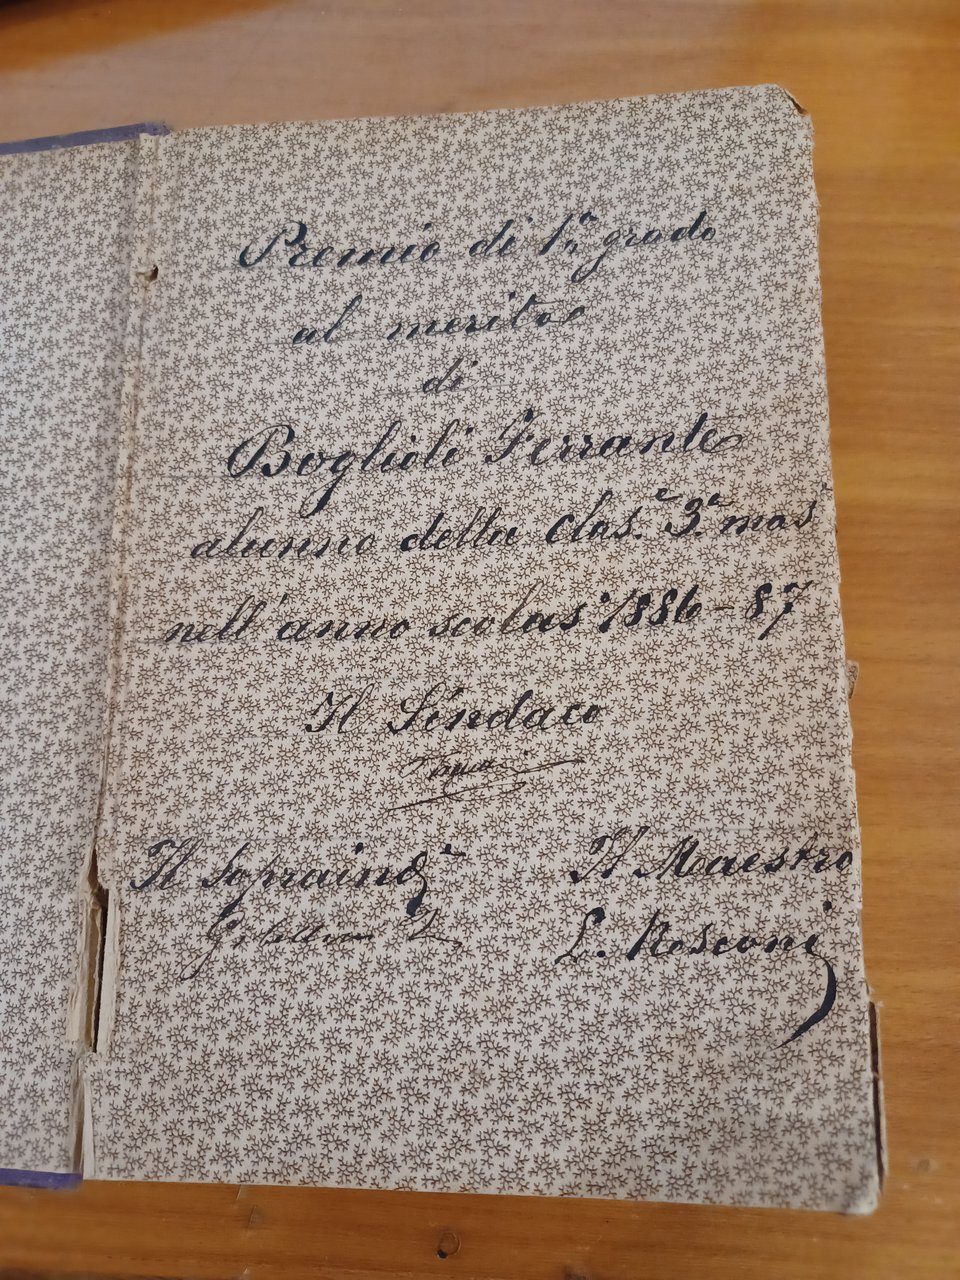 Premio di 1º grado
al merito
di
Boglioli Ferrante
alunno della clas.e 3.a mas
nell'anno scolas.o 1886-87
Il Sindaco
Il Sopraind.e Il Maestro
L. Rosconi